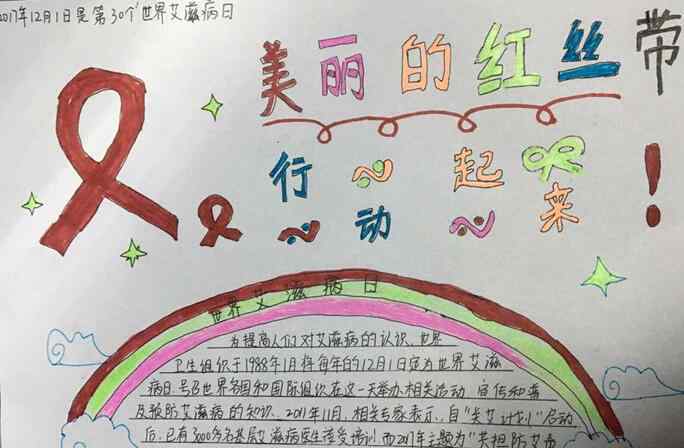 2017年12月1日是第30个世界艾滋病日
美丽的红丝带
行动起来!
世界艾滋病日
为提高人们对艾滋病的认识,世界
卫生组织于1988年1月将每年的12月1日定为世界艾滋
病日,号召世界各国和国际组织在这一天举办相关活动,宣传和普
及预防艾滋病的知识。2017年11月,相关专家表示,自"
启动
后,已有8000多名基层艾滋病医生接受培训而2017年主题为"共担防艾